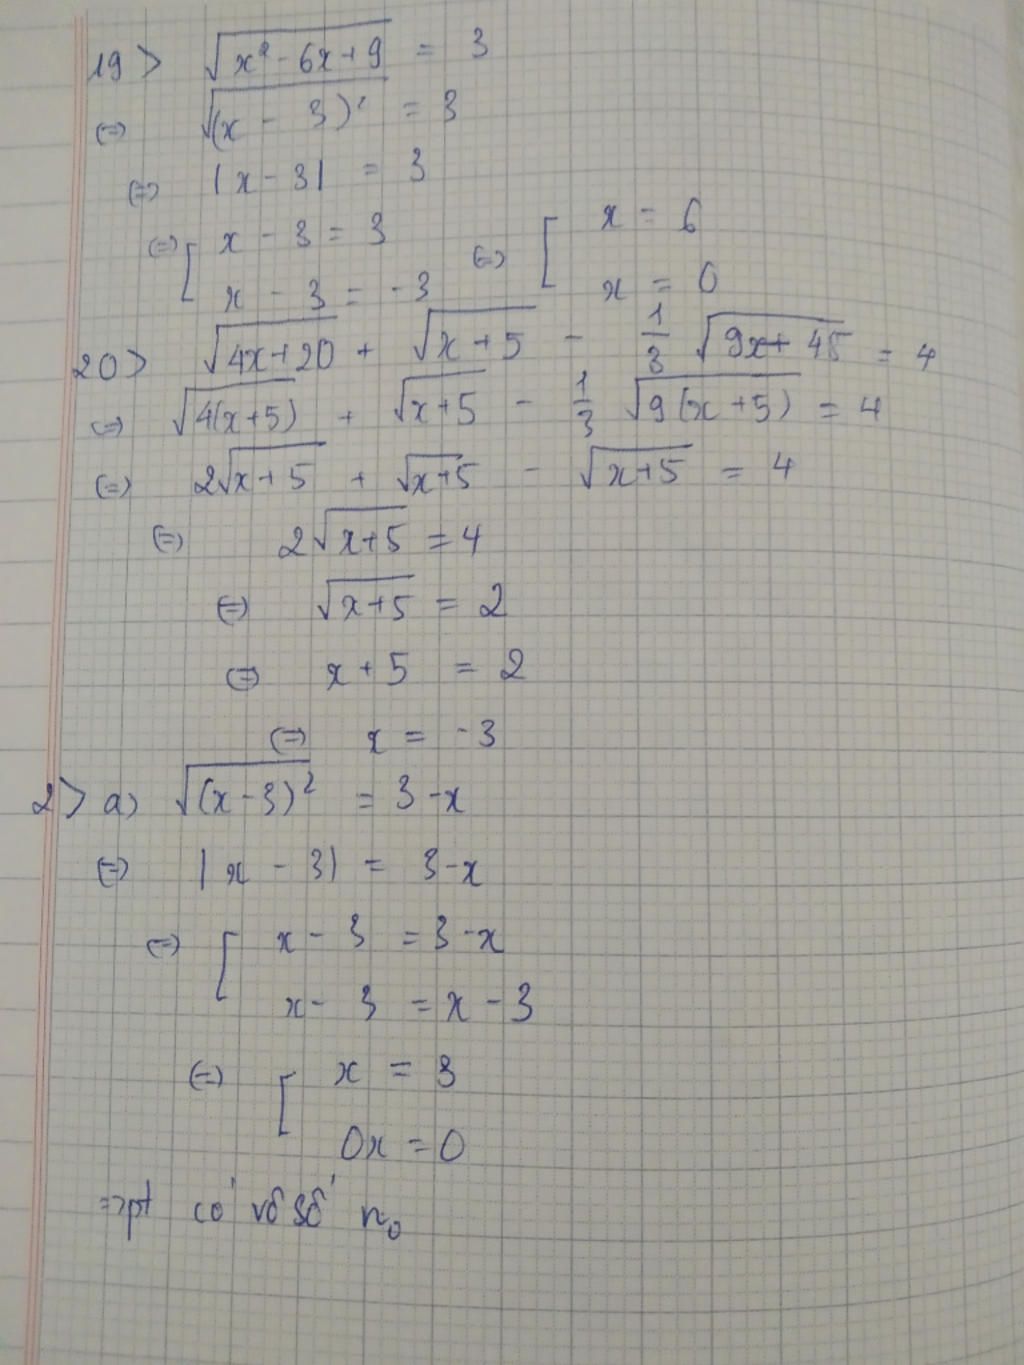 19> √(x² - 6x + 9) = 3
(=) √((x - 3)²) = 3
(=) |x - 3| = 3
(=) [ x - 3 = 3 (=) [ x = 6
x - 3 = -3 x = 0
20> √(4x+20) + √(x+5) - 1/3 √(9x+45) = 4
(=) √(4(x+5)) + √(x+5) - 1/3 √(9(x+5)) = 4
(=) 2√(x+5) + √(x+5) - √(x+5) = 4
(=) 2√(x+5) = 4
(=) √(x+5) = 2
(=) x + 5 = 2
(=) x = -3
2> a) √((x-3)²) = 3-x
(=) |x - 3| = 3-x
(=) [ x - 3 = 3-x
x - 3 = x - 3
(=) [ x = 3
0x = 0
=> pt có vô số n₀